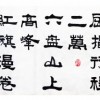 屈指行程
二萬
六盤山上
高峰
紅旗漫卷